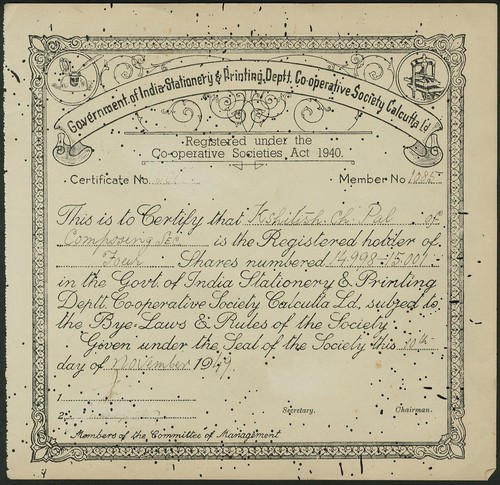 Government of India Stationery & Printing Deptt. Co-operative Society Calcutta Ld
Registered under the
Co-operative Societies Act 1940.
Certificate No.
Member No 1285
This is to Certify that Kshitish Ch. Pal of
Composing Sec is the Registered holder of
Four Shares numbered 14998-15001
in the Govt. of India Stationery & Printing
Deptt. Co-operative Society Calcutta Ld., subject to
the Bye-Laws & Rules of the Society.
Given under the Seal of the Society this 30th
day of November 1949.
1
2
Secretary.
Chairman.
Members of the Committee of Management
4